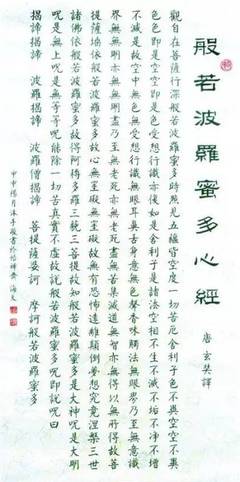 般若波羅蜜多心經
唐玄奘譯
觀自在菩薩行深般若波羅蜜多時照見五蘊皆空度一切苦厄舍利子色不異空空不異
色色即是空空即是色受想行識亦復如是舍利子是諸法空相不生不滅不垢不淨不增
不減是故空中無色無受想行識無眼耳鼻舌身意無色聲香味觸法無眼界乃至無意識
界無無明亦無無明盡乃至無老死亦無老死盡無苦集滅道無智亦無得以無所得故菩
提薩埵依般若波羅蜜多故心無罣礙無罣礙故無有恐怖遠離顛倒夢想究竟涅槃三世
諸佛依般若波羅蜜多故得阿耨多羅三藐三菩提故知般若波羅蜜多是大神呪是大明
呪是無上呪是無等等呪能除一切苦真實不虛故說般若波羅蜜多呪即說呪曰
揭諦揭諦 波羅揭諦 波羅僧揭諦 菩提薩婆訶 摩訶般若波羅蜜多
甲申陽月沐手敬書於